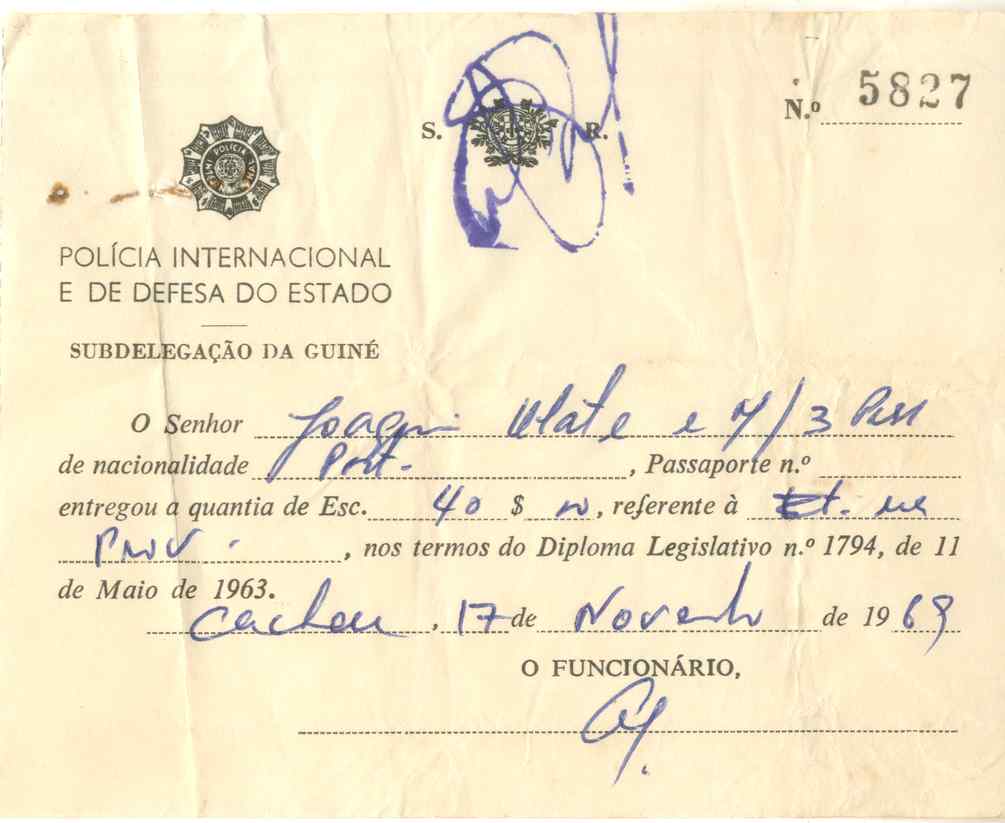 N.º 5827
S. R.
POLÍCIA INTERNACIONAL
E DE DEFESA DO ESTADO
SUBDELEGAÇÃO DA GUINÉ
O Senhor Joaquim e 7/3
de nacionalidade Port. , Passaporte n.º
entregou a quantia de Esc. 40 $ 00, referente à
Prov. , nos termos do Diploma Legislativo n.º 1794, de 11
de Maio de 1963.
Cacheu, 17 de Novembro de 1969
O FUNCIONÁRIO,